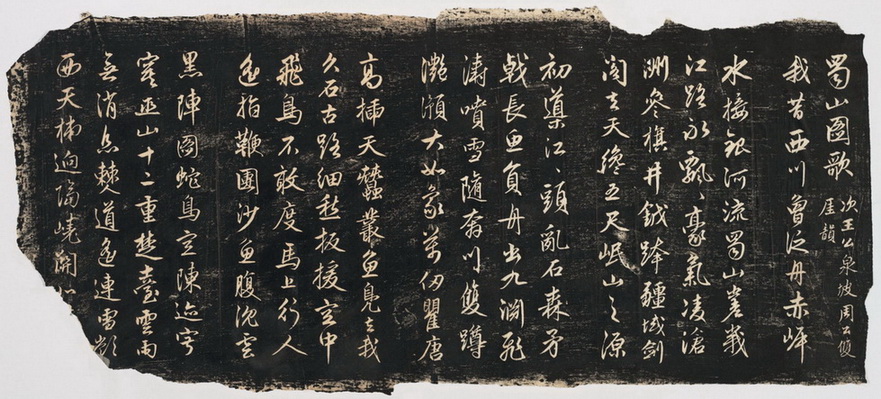 蜀山圖歌
次王公泉坡周公雙
厓韻
我昔西川曾泛舟赤岬
水接銀河流蜀山嵳峩
江路永飄〃豪氣凌滄
洲參旗井鉞跨疆域劍
閣去天纔五尺岷山之源
初導江〃頭亂石森矛
戟長魚負舟出九淵飛
濤噴雪隨奔川雙蹲
灧澦大如象萬仞瞿唐
高插天蠶叢魚鳧去我
久石古路細愁扳援空中
飛鳥不敢度馬上行人
遙指鞭團沙魚腹沈雲
黑陣圖蛇鳥空陳迹寂
寞巫山十二重楚臺雲雨
無消息僰道遙連雪嶺
西天梯迥隔嶢開